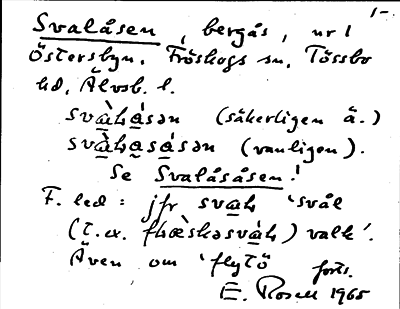 1-
Svalåsen, bergås, nr 1
Östersbyn. Fröskogs sn. Tössbo
hd, Älvsb. l.
(säkerligen ä.)
(vanligen).
Se Svalåsåsen!
F. led: jfr 'svål
(t.ex. ) valk'.
Även om 'flytö forts.
E. Rosell 1965